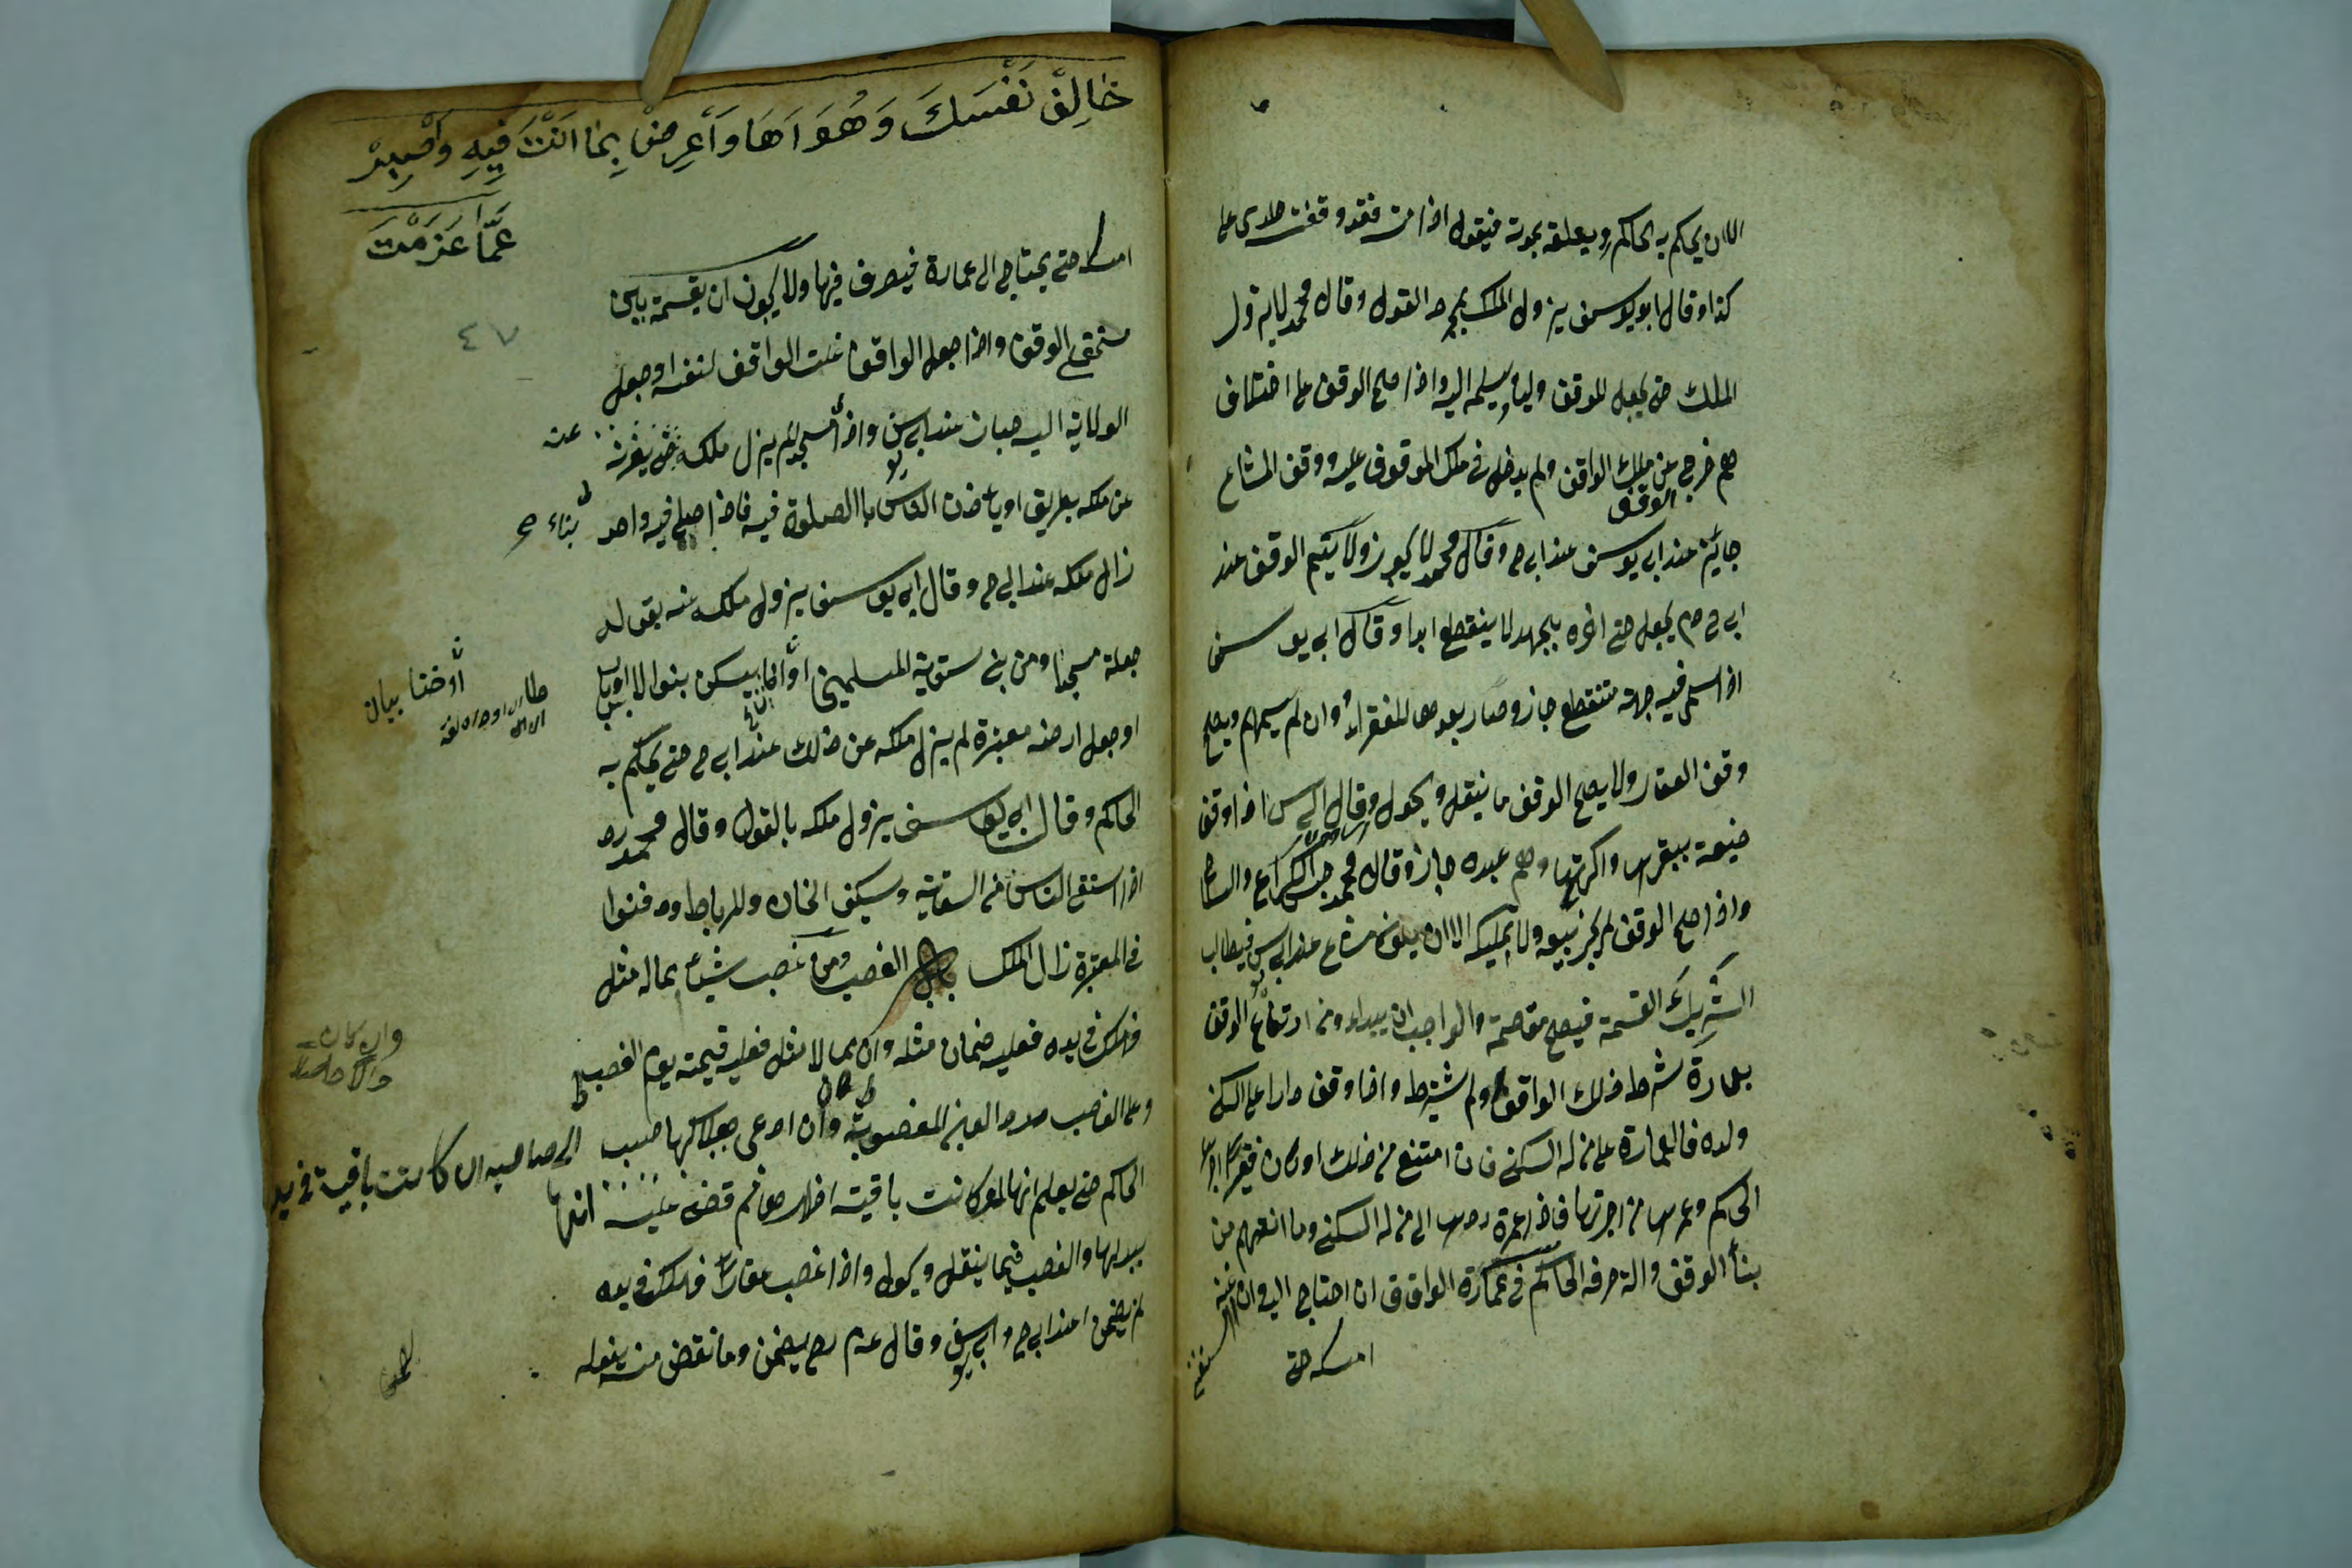 الا ان يحكم به الحاكم او يعلقه بموته فيقول اذا مت فقد وقفت داري على
كذا وقال ابو يوسف يزول الملك بمجرد القول وقال محمد لا يزول
الملك حتى يجعل للوقف وليا ويسلمه اليه واذا صح الوقف على اختلاف
هم خرج من ملك الواقف ولم يدخل في ملك الموقوف عليه ووقف المشاع
جايز عند ابي يوسف عند ابي ح وقال محمد لا يجوز ولا يتم الوقف عند
ابي ح وم يجعل حتى اخره بجهة لا ينقطع ابدا وقال ابي يوسف
اذا سمى فيه جهة منقطع جاز وصار بعدها للفقراء وان لم يسمهم ويصح
وقف العقار ولا يصح الوقف ما ينقل ويحول وقال ابي س اذا وقف
ضيعة ببقرها واكرتها وهم عبده جاز وقال محمد حبس الكراع والسلاح
واذا صح الوقف لم يجز بيعه ولا تمليكه الا ان يكون مشاع عند ابي س فيطالب
الشريك القسمة فيصح مقاسمة والواجب ان يبداء من ارتفاع الوقف
بعمارة شرط ذلك الواقف او لم يشترط واذا وقف دارا على السكنى
ولده فالعمارة على من له السكنى فان امتنع من ذلك او كان فقيرا اجر
الحاكم وعمرها من اجرتها فاذا عمرة ردها الى من له السكنى وما انهدم من
بناء الوقف والة صرفه الحاكم في عمارة الواقف ان احتاج اليه وان
امسكه حتى
خَالِفْ نَفْسَكَ وَهُوَاَهَا وَاَعْرِضْ بِمَا اَنْتَ فِيهِ وَاصْبِرْ
عَمَّا عَزَمْتَ
٤٧
امسكه حتى يحتاج الى عمارة فيصرف فيها ولا يجوز ان يقسمة بين
مستحقي الوقف واذا جعل الواقف غلت الواقف لنفسه او جعل
الولاية اليه جاز عند ابي س واذا مسجدا لم يزل ملكه حتى يفرزه عنه
عن ملكه بطريق او ياذن الناس با الصلوة فيه فاذا صلى فيه واحد
بناء صح
زال ملكه عند ابي ح وقال ابي يوسف يزول ملكه عنه بقوله
جعلة مسجدا ومن بنى سقاية للمسلمين او خانا يسكن بنوا السبيل
او خانا بيان
او جعل ارضه مقبرة لم يزل ملكه عن ذلك عند ابي ح حتى يحكم به
الحاكم وقال ابي يوسف يزول ملكه بالقول وقال محمد رح
اذا استقى الناس من السقاية وسكنى الخان وللرباط ودفنوا
في المقبرة زال الملك الغصب ومن غصب شيئا بماله مثل
فهلك في يده فعليه ضمان مثله وان مما لا مثل فعليه قيمته يوم الغصب
وان كان
وعلى الغاصب رد العين المغصوبة وان ادعى هلاكها حبسه
الى صاحبه ان كانت باقية في يد
الحاكم حتى يعلم انها لو كانت باقية اظهرها ثم قضى عليه
انها
ببدلها والغصب فيما ينقل ويحول واذا غصب عقارا فهلك في يده
لم يضمن عند ابي ح وابي يوسف وقال م رح يضمن وما نقض منه بفعله